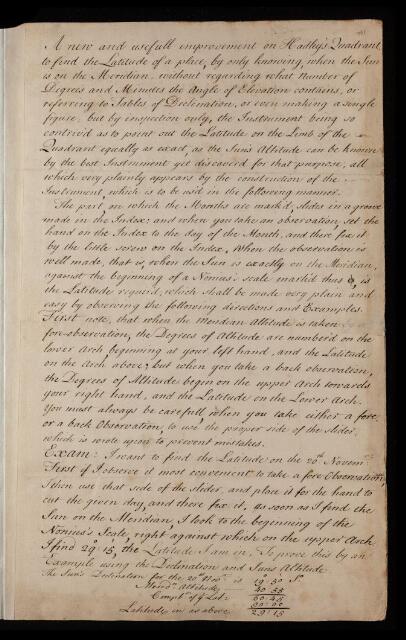 A new and usefull improvement on Hadley's Quadrant,
to find the Latitude of a place, by only knowing, when the Sun
is on the Meridian, without regarding what Number of
Degrees and Minutes the Angle of Elevation contains, or
referring to Tables of Declination, or even making a single
figure, but by inspection only, the Instrument being so
contriv'd as to point out the Latitude on the Limb of the
Quadrant equally as exact, as the Sun's Altitude can be known
by the best Instrument yet discover'd for that purpose, all
which very plainly appears by the construction of the
Instrument, which is to be us'd in the following manner.
The part, on which the Months are mark'd, slides in a groove
made in the Index; and when you take an observation, set the
hand on the Index to the day of the Month, and there fix it
by the little screw on the Index, When the observation is
well made, that is, when the Sun is exactly on the Meridian,
against the beginning of a Nonius's scale mark'd thus is
the Latitude requir'd, which shall be made very plain and
easy by observing the following directions and Examples.
First note, that when the Meridian Altitude is taken
fore-observation, the Degrees of Altitude are number'd on the
lower Arch beginning at your left hand, and the Latitude
on the Arch above; but when you take a back observation,
the Degrees of Altitude begin on the upper Arch towards
your right hand, and the Latitude on the Lower Arch.
You must always be carefull when you take either a fore
or a back Observation, to use the proper side of the slider,
which is wrote upon to prevent mistakes.
Exam: I want to find the Latitude on the 20th Novem
First if I observe it most convenient to take a fore Observation,
I then use that side of the slider, and place it for the hand to
cut the given day, and there fix it, as soon as I find the
Sun on the Meridian, I look to the beginning of the
Nonius's Scale, right against which on the upper Arch
I find 29° 15', the Latitude I am in, To prove this by an
Example using the Declination and Suns Altitude
The Sun's Declination for the 20th Nov. is 19° 50 S°
Merid. Altitude 40 55
Compt of ye Lat: 60 45
90 00
Latitude in as above 29° 15